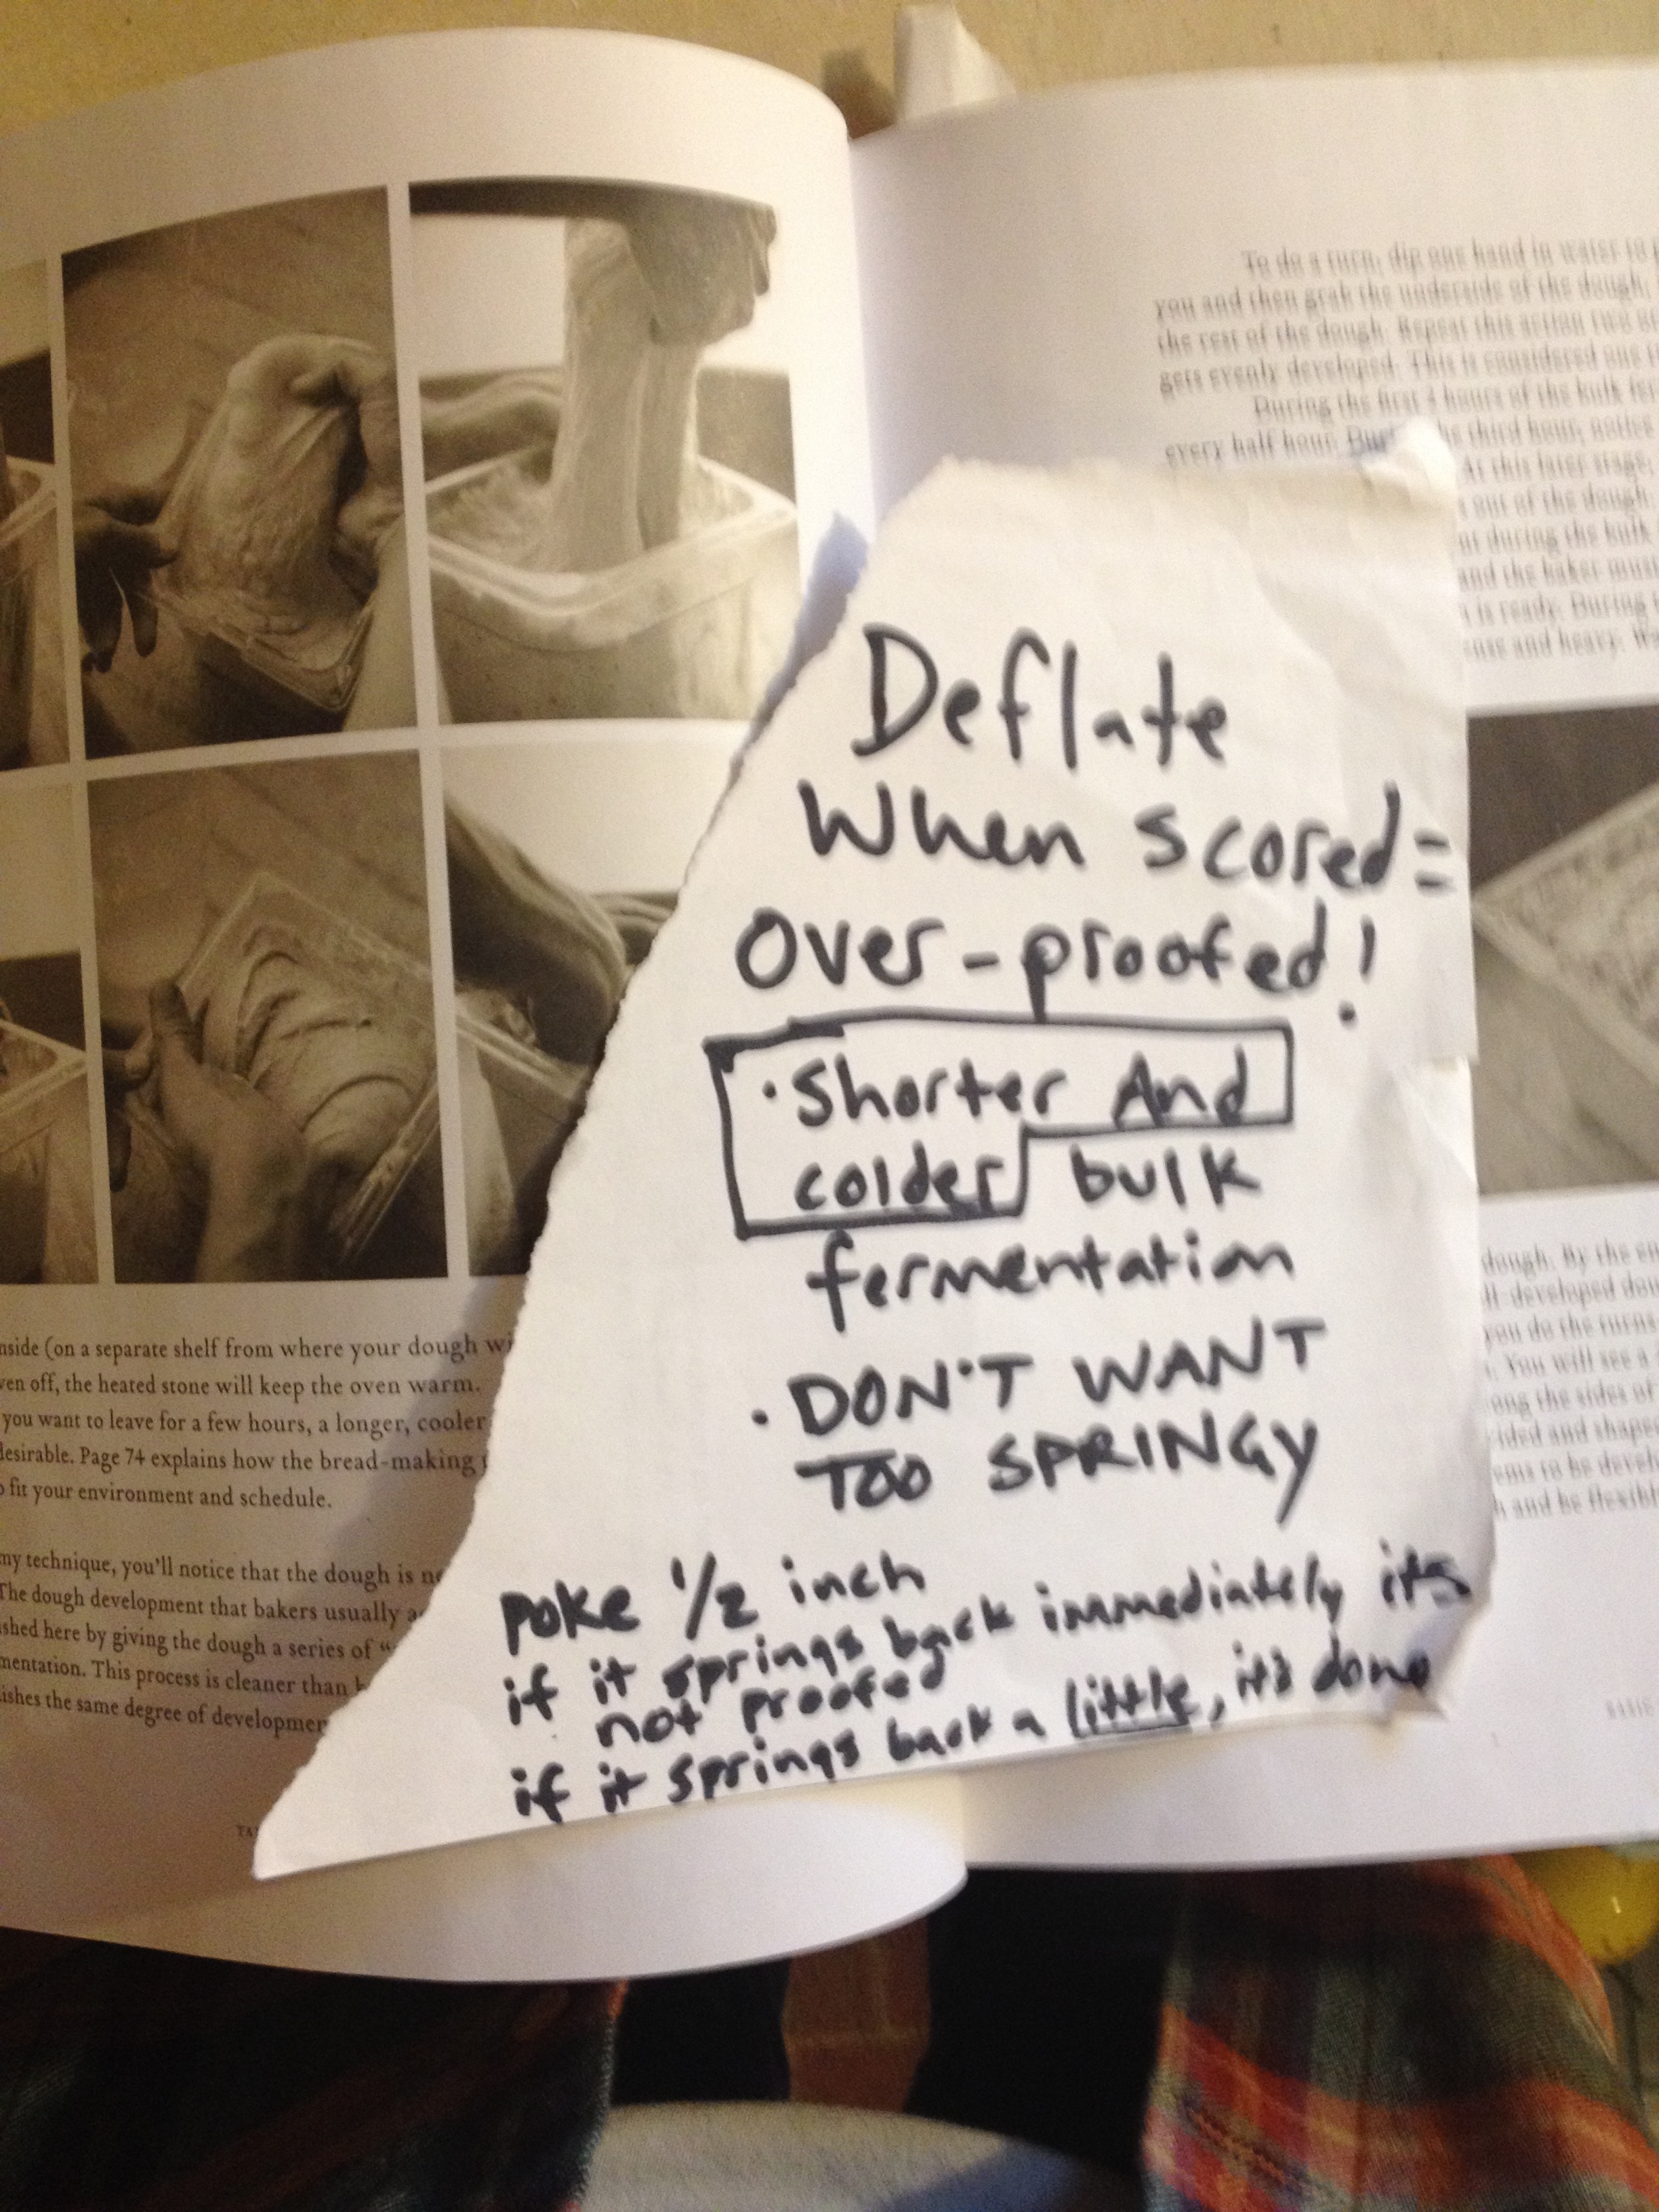 To do a turn, dip one hand in water to
you and then grab the underside of the dough,
the rest of the dough. Repeat this action two or
gets evenly developed. This is considered one
During the first 2 hours of the bulk
every half hour. the third hour, notice
At this later stage,
out of the dough.
during the bulk
and the baker must
is ready. During
and heavy.
Deflate
When scored =
Over-proofed!
• Shorter And
colder bulk
fermentation
• DON'T WANT
TOO SPRINGY
poke 1/2 inch
if it springs back immediately its
not proofed
if it springs back a little, it's done
(on a separate shelf from where your dough
off, the heated stone will keep the oven warm.
you want to leave for a few hours, a longer, cooler
Page 74 explains how the bread-making
fit your environment and schedule.
my technique, you'll notice that the dough is
The dough development that bakers usually
here by giving the dough a series of "
This process is cleaner than
the same degree of
dough. By the
you do the turns.
You will see a
the sides of
and shaped
to be
and be